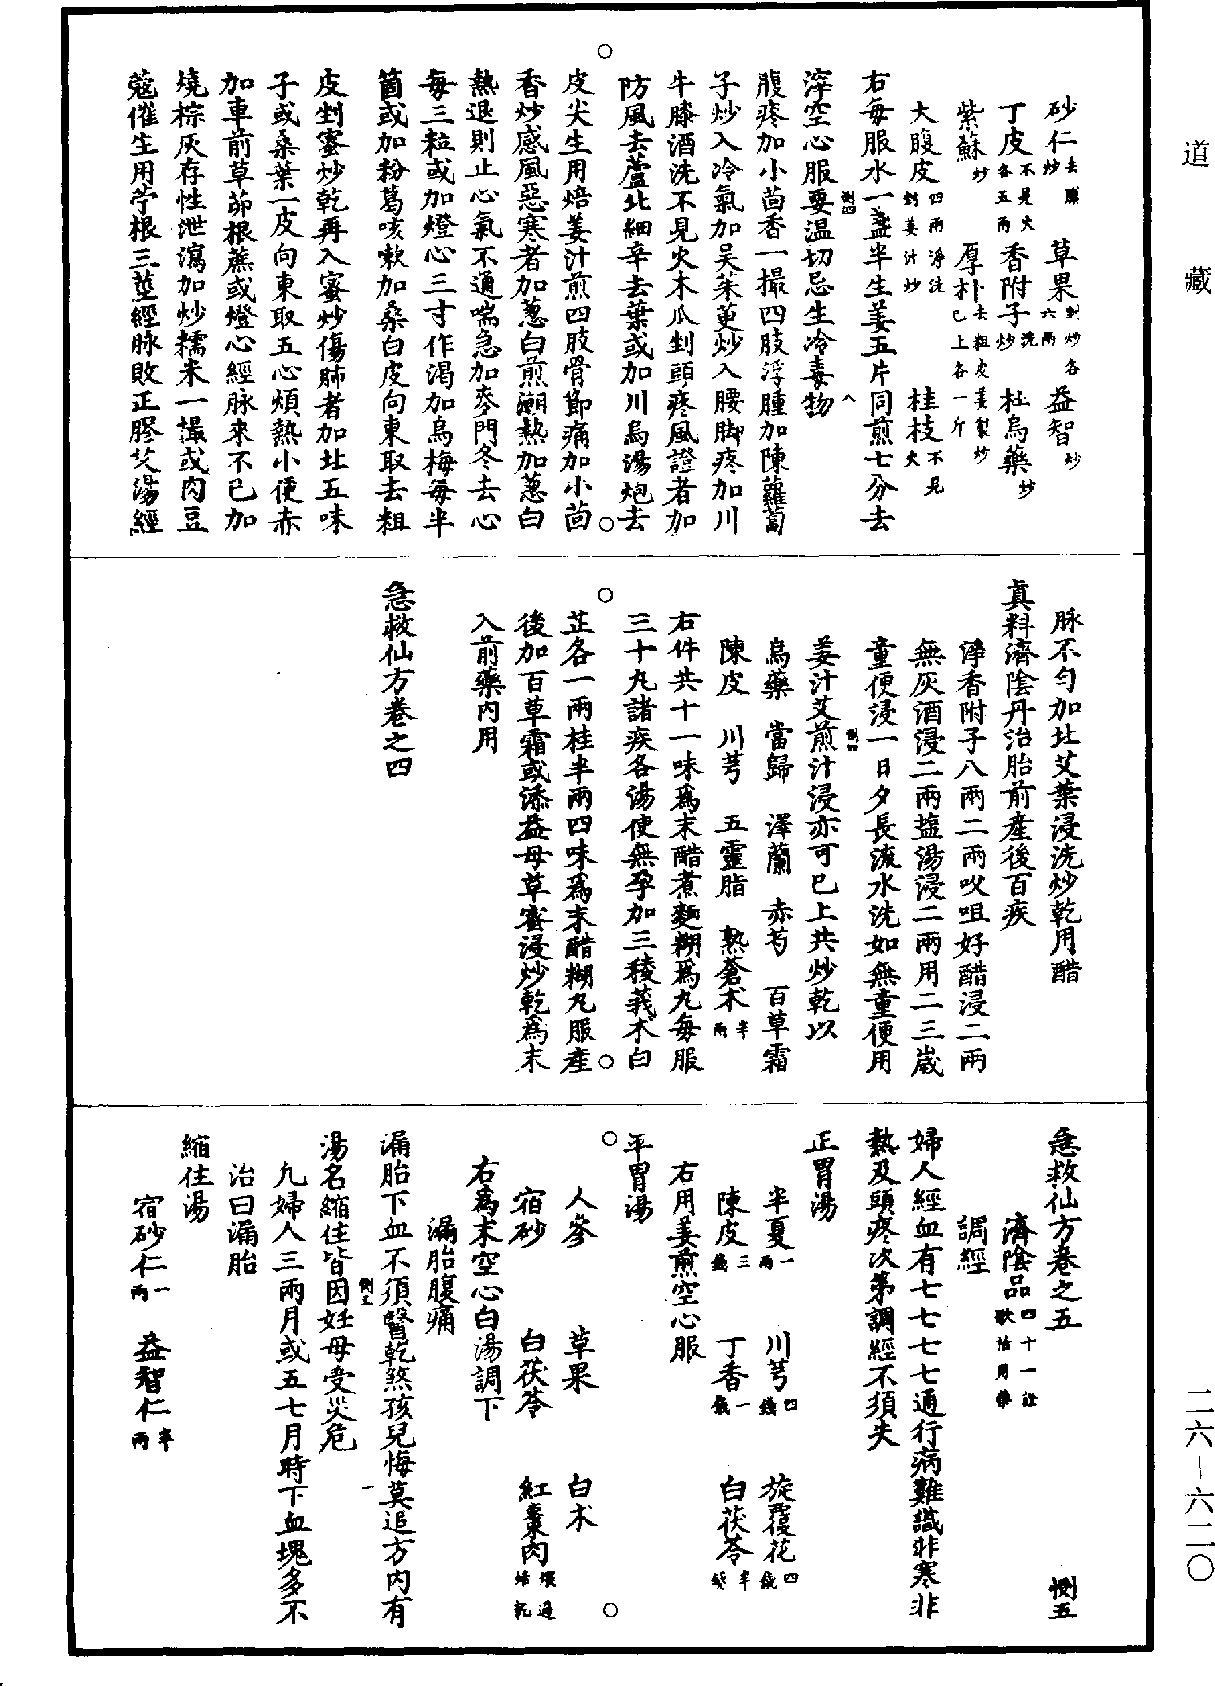 道藏
砂仁去膜炒　草果剉炒各六兩　益智炒
丁皮不見火各五兩　香附子洗炒　杜烏藥炒
紫蘇炒　厚朴去粗皮姜製炒已上各一斤
大腹皮四兩淨洗剉姜汁炒　桂枝不見火
右每服水一盞半生姜五片同煎七分去
滓空心服要温切忌生冷毒物
腹疼加小茴香一撮四肢浮腫加陳蘿蔔
子炒入冷氣加吴茱萸炒入腰脚疼加川
牛膝酒洗不見火木瓜剉頭疼風證者加
防風去蘆北細辛去葉或加川烏湯炮去
皮尖生用焙姜汁煎四肢骨節痛加小茴
香炒感風惡寒者加蔥白煎潮熱加蔥白
熱退則止心氣不通喘急加麥門冬去心
每三粒或加燈心三寸作渴加烏梅每半
箇或加粉葛咳嗽加桑白皮向東取去粗
皮剉蜜炒乾再入蜜炒傷肺者加北五味
子或桑葉一皮向東取五心煩熱小便赤
加車前草茆根蔗或燈心經脉來不已加
燒棕灰存性泄瀉加炒糯米一撮或肉豆
蔻催生用苧根三莖經脉敗正膠艾湯經
脉不勻加北艾葉浸洗炒乾用醋
真料濟陰丹治胎前産後百疾
淨香附子八兩二兩㕮咀好醋浸二兩
無灰酒浸二兩塩湯浸二兩用二三歲
童便浸一日夕長流水洗如無童便用
姜汁艾煎汁浸亦可已上共炒乾以
烏藥　當歸　澤蘭　赤芍　百草霜
陳皮　川芎　五靈脂　熟蒼术半兩
右件共十一味爲末醋煮麵糊爲丸每服
三十丸諸疾各湯使無孕加三稜莪术白
芷各一兩桂半兩四味爲末醋糊丸服産
後加百草霜或添益母草蜜浸炒乾爲末
入前藥内用
急救仙方卷之四
急救仙方卷之五　惻五
濟陰品四十一證歌括用藥
調經
婦人經血有七七七七通行病難識非寒非
熱及頭疼次第調經不須失
正胃湯
半夏一兩　川芎四錢　旋覆花四錢
陳皮三錢　丁香一錢　白茯苓半錢
右用姜煎空心服
平胃湯
人參　草果　白术
宿砂　白茯苓　紅棗肉煨過焙乾
右爲末空心白湯調下
漏胎腹痛
漏胎下血不須醫乾煞孩兒悔莫追方内有
湯名縮住皆因妊母受災危
凡婦人三兩月或五七月時下血塊多不
治曰漏胎
縮住湯
宿砂仁一兩　益智仁半兩
二六—六二〇